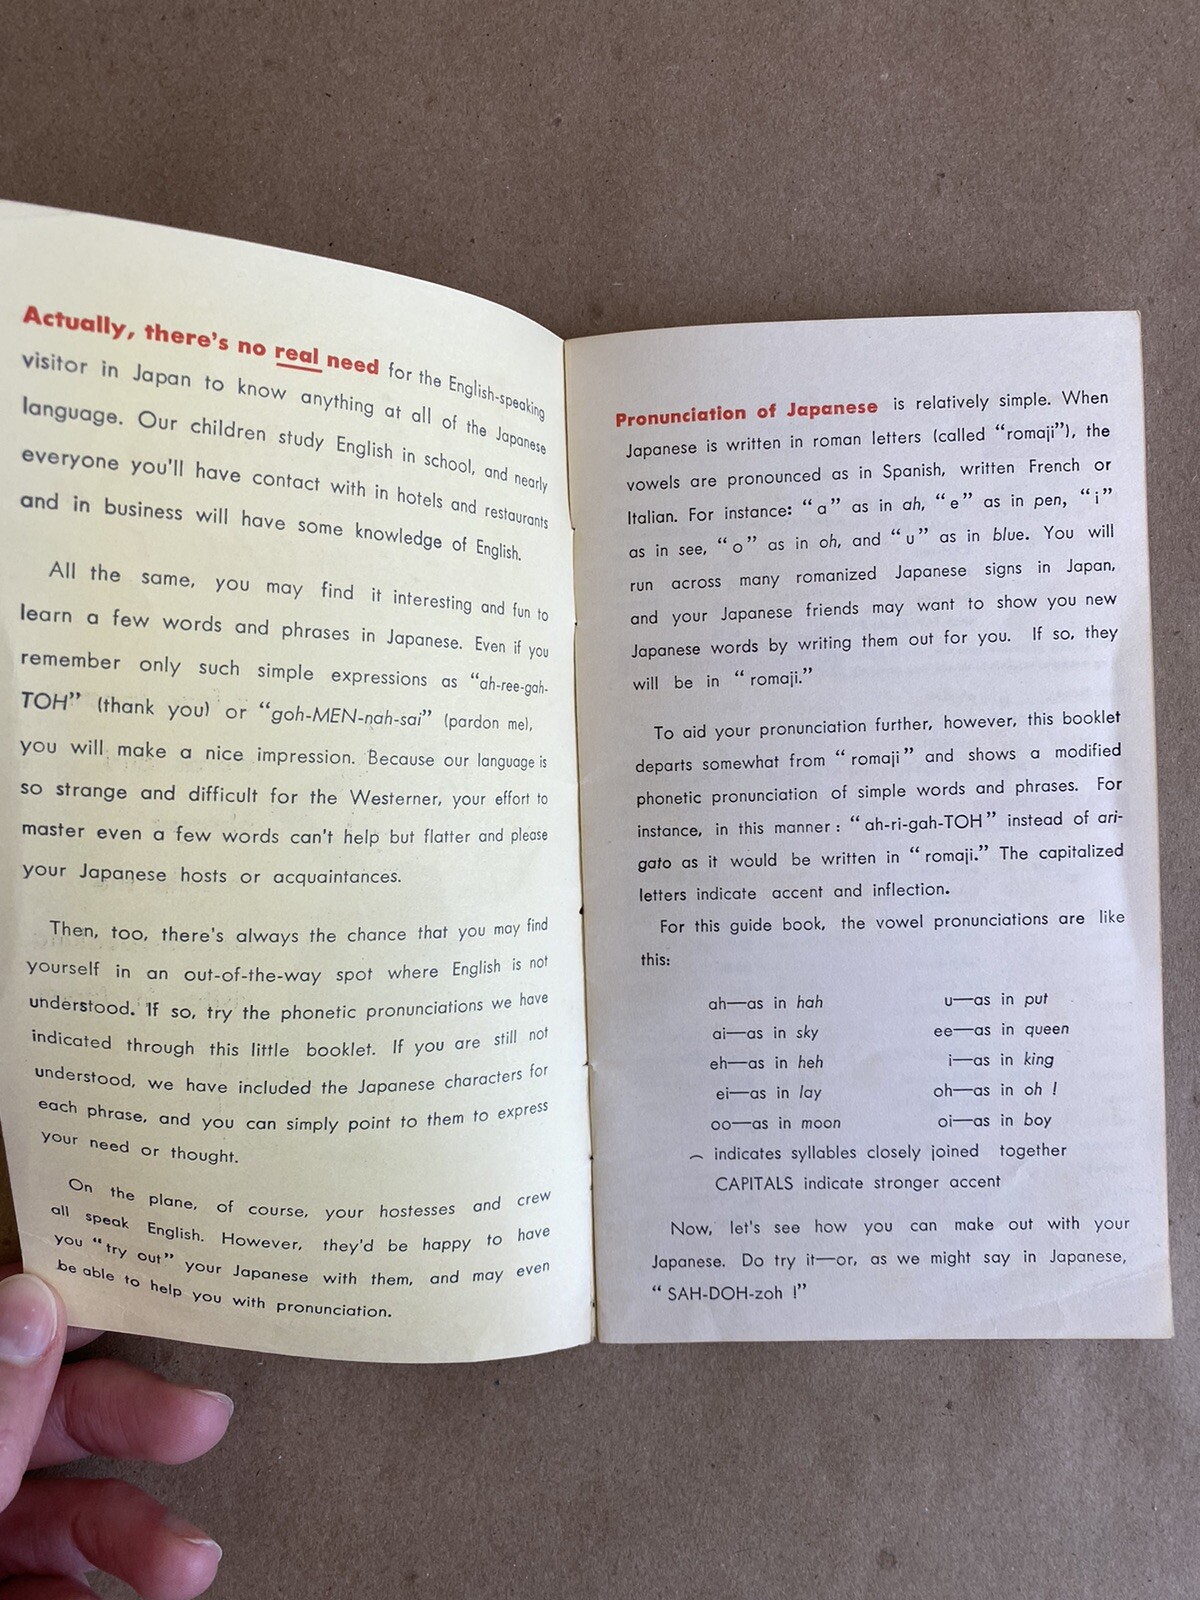 Actually, there's no real need for the English-speaking
visitor in Japan to know anything at all of the Japanese
language. Our children study English in school, and nearly
everyone you'll have contact with in hotels and restaurants
and in business will have some knowledge of English.
All the same, you may find it interesting and fun to
learn a few words and phrases in Japanese. Even if you
remember only such simple expressions as "ah-ree-gah-
TOH" (thank you) or "goh-MEN-nah-sai" (pardon me),
you will make a nice impression. Because our language is
so strange and difficult for the Westerner, your effort to
master even a few words can't help but flatter and please
your Japanese hosts or acquaintances.
Then, too, there's always the chance that you may find
yourself in an out-of-the-way spot where English is not
understood. If so, try the phonetic pronunciations we have
indicated through this little booklet. If you are still not
understood, we have included the Japanese characters for
each phrase, and you can simply point to them to express
your need or thought.
On the plane, of course, your hostesses and crew
all speak English. However, they'd be happy to have
you "try out" your Japanese with them, and may even
be able to help you with pronunciation.
Pronunciation of Japanese is relatively simple. When
Japanese is written in roman letters (called "romaji"), the
vowels are pronounced as in Spanish, written French or
Italian. For instance: "a" as in ah, "e" as in pen, "i"
as in see, "o" as in oh, and "u" as in blue. You will
run across many romanized Japanese signs in Japan,
and your Japanese friends may want to show you new
Japanese words by writing them out for you. If so, they
will be in "romaji."
To aid your pronunciation further, however, this booklet
departs somewhat from "romaji" and shows a modified
phonetic pronunciation of simple words and phrases. For
instance, in this manner: "ah-ri-gah-TOH" instead of ari-
gato as it would be written in "romaji." The capitalized
letters indicate accent and inflection.
For this guide book, the vowel pronunciations are like
this:
ah—as in hah u—as in put
ai—as in sky ee—as in queen
eh—as in heh i—as in king
ei—as in lay oh—as in oh !
oo—as in moon oi—as in boy
⁀ indicates syllables closely joined together
CAPITALS indicate stronger accent
Now, let's see how you can make out with your
Japanese. Do try it—or, as we might say in Japanese,
"SAH-DOH-zoh !"